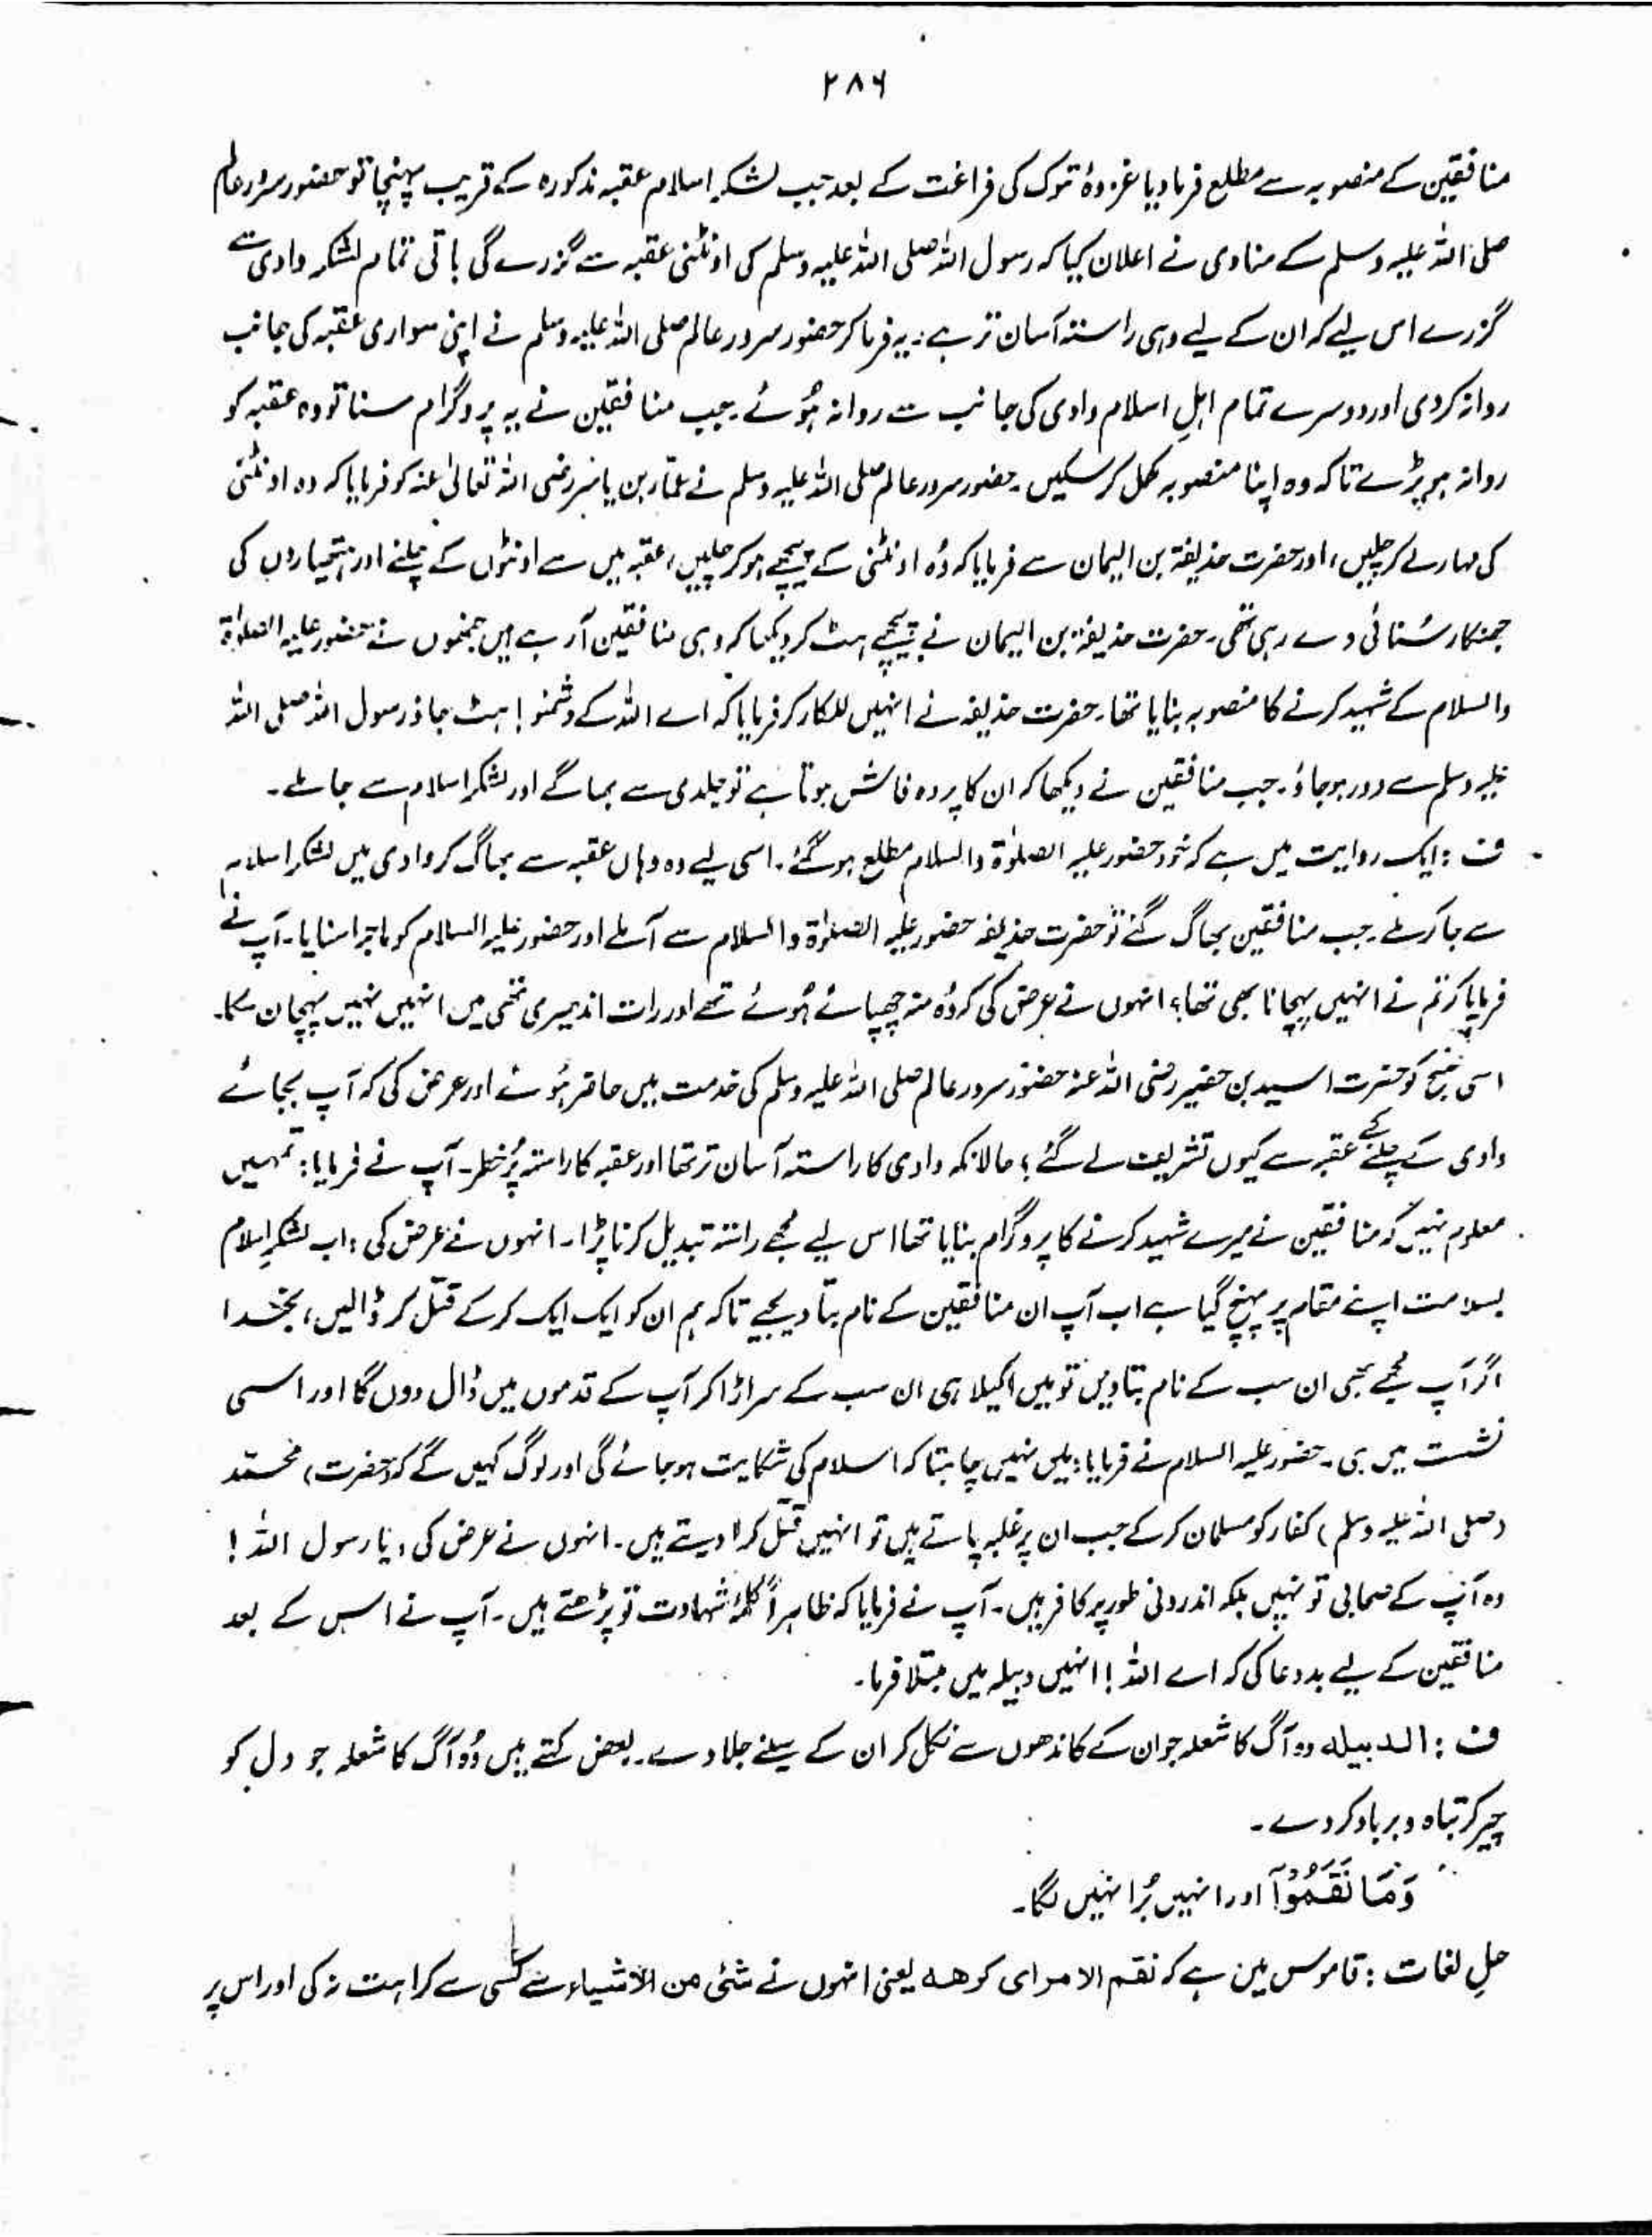 ۲۸۶
منافقین کے منصوبہ سے مطلع فرما دیا غزوۂ تبوک کی فراغت کے بعد جب لشکرِ اسلام عقبہ مذکورہ کے قریب پہنچا تو حضور سرور عالم
صلی اللہ علیہ وسلم کے منادی نے اعلان کیا کہ رسول اللہ صلی اللہ علیہ وسلم کی اونٹنی عقبہ سے گزرے گی باقی تمام لشکر وادی سے
گزرے اس لیے کہ ان کے لیے وہی راستہ آسان تر ہے: یہ فرما کر حضور سرور عالم صلی اللہ علیہ وسلم نے اپنی سواری عقبہ کی جانب
روانہ کردی اور دوسرے تمام اہلِ اسلام وادی کی جانب سے روانہ ہُوئے۔ جب منافقین نے یہ پروگرام سنا تو وہ عقبہ کو
روانہ ہو پڑے تاکہ وہ اپنا منصوبہ مکمل کر سکیں۔ حضور سرور عالم صلی اللہ علیہ وسلم نے عمّار بن یاسر رضی اللہ تعالیٰ عنہ کو فرمایا کہ وہ اونٹنی
کی مہار لے کر چلیں، اور حضرت حذیفۃ بن الیمان سے فرمایا کہ وُہ اونٹنی کے پیچھے ہو کر چلیں، عقبہ میں سے اونٹوں کے چلنے اور ہتھیاروں کی
جھنکار سُنائی دے رہی تھی۔ حضرت حذیفۃ بن الیمان نے پیچھے ہٹ کر دیکھا کہ وہی منافقین آرہے ہیں جنھوں نے حضور علیہ الصلوٰۃ
والسلام کے شہید کرنے کا منصوبہ بنایا تھا۔ حضرت حذیفہ نے انہیں للکار کر فرمایا کہ اے اللہ کے دشمنو! ہٹ جاؤ رسول اللہ صلی اللہ
علیہ وسلم سے دور ہوجاؤ۔ جب منافقین نے دیکھا کہ ان کا پردہ فاش ہوتا ہے تو جلدی سے بھاگے اور لشکر اسلام سے جا ملے۔
ف : ایک روایت میں ہے کہ خود حضور علیہ الصلوٰۃ والسلام مطلع ہوگئے۔ اسی لیے وہ وہاں عقبہ سے بھاگ کر وادی میں لشکر اسلام
سے جاکر ملے۔ جب منافقین بھاگ گئے تو حضرت حذیفہ حضور علیہ الصلوٰۃ والسلام سے آملے اور حضور علیہ السلام کو ماجرا سنایا۔ آپ نے
فرمایا کہ تم نے انہیں پہچانا بھی تھا؟ انہوں نے عرض کی کہ وُہ منہ چھپائے ہُوئے تھے اور رات اندھیری تھی میں انہیں نہیں پہچان سکا۔
اسی صبح کو حضرت اسید بن حضیر رضی اللہ عنہ حضور سرور عالم صلی اللہ علیہ وسلم کی خدمت میں حاضر ہُوئے اور عرض کی کہ آپ بجائے
وادی کے چلنے کے عقبہ سے کیوں تشریف لے گئے؟ حالانکہ وادی کا راستہ آسان تر تھا اور عقبہ کا راستہ پُر خطر۔ آپ نے فرمایا: تمہیں
معلوم نہیں کہ منافقین نے میرے شہید کرنے کا پروگرام بنایا تھا اس لیے مجھے راستہ تبدیل کرنا پڑا۔ انہوں نے عرض کی: اب لشکرِ اسلام
بسلامت اپنے مقام پر پہنچ گیا ہے اب آپ ان منافقین کے نام بتا دیجیے تاکہ ہم ان کو ایک ایک کرکے قتل کر ڈالیں، بخدا
اگر آپ مجھے بھی ان سب کے نام بتا دیں تو میں اکیلا ہی ان سب کے سر اڑا کر آپ کے قدموں میں ڈال دوں گا اور اسی
نشست میں ہی۔ حضور علیہ السلام نے فرمایا: میں نہیں چاہتا کہ اسلام کی شکایت ہوجائے گی اور لوگ کہیں گے کہ (حضرت) محمّد
(صلی اللہ علیہ وسلم) کفار کو مسلمان کرکے جب ان پر غلبہ پاتے ہیں تو انہیں قتل کرا دیتے ہیں۔ انہوں نے عرض کی: یا رسول اللہ!
وہ آپ کے صحابی تو نہیں بلکہ اندرونی طور پر کافر ہیں۔ آپ نے فرمایا کہ ظاہراً کلمۂ شہادت تو پڑھتے ہیں۔ آپ نے اس کے بعد
منافقین کے لیے بددعا کی کہ اے اللہ! انہیں دبیلہ میں مبتلا فرما۔
ف : الدبیلہ وہ آگ کا شعلہ جو ان کے کاندھوں سے نکل کر ان کے سینے جلا دے۔ بعض کہتے ہیں وُہ آگ کا شعلہ جو دل کو
چیر کر تباہ و برباد کر دے۔
وَمَا نَقَمُوْآ اور انہیں بُرا نہیں لگا۔
حلِ لغات : قاموس میں ہے کہ نقم الامر ای کرھہ یعنی انہوں نے شئی من الاشیاء سے کسی سے کراہت نہ کی اور اس پر